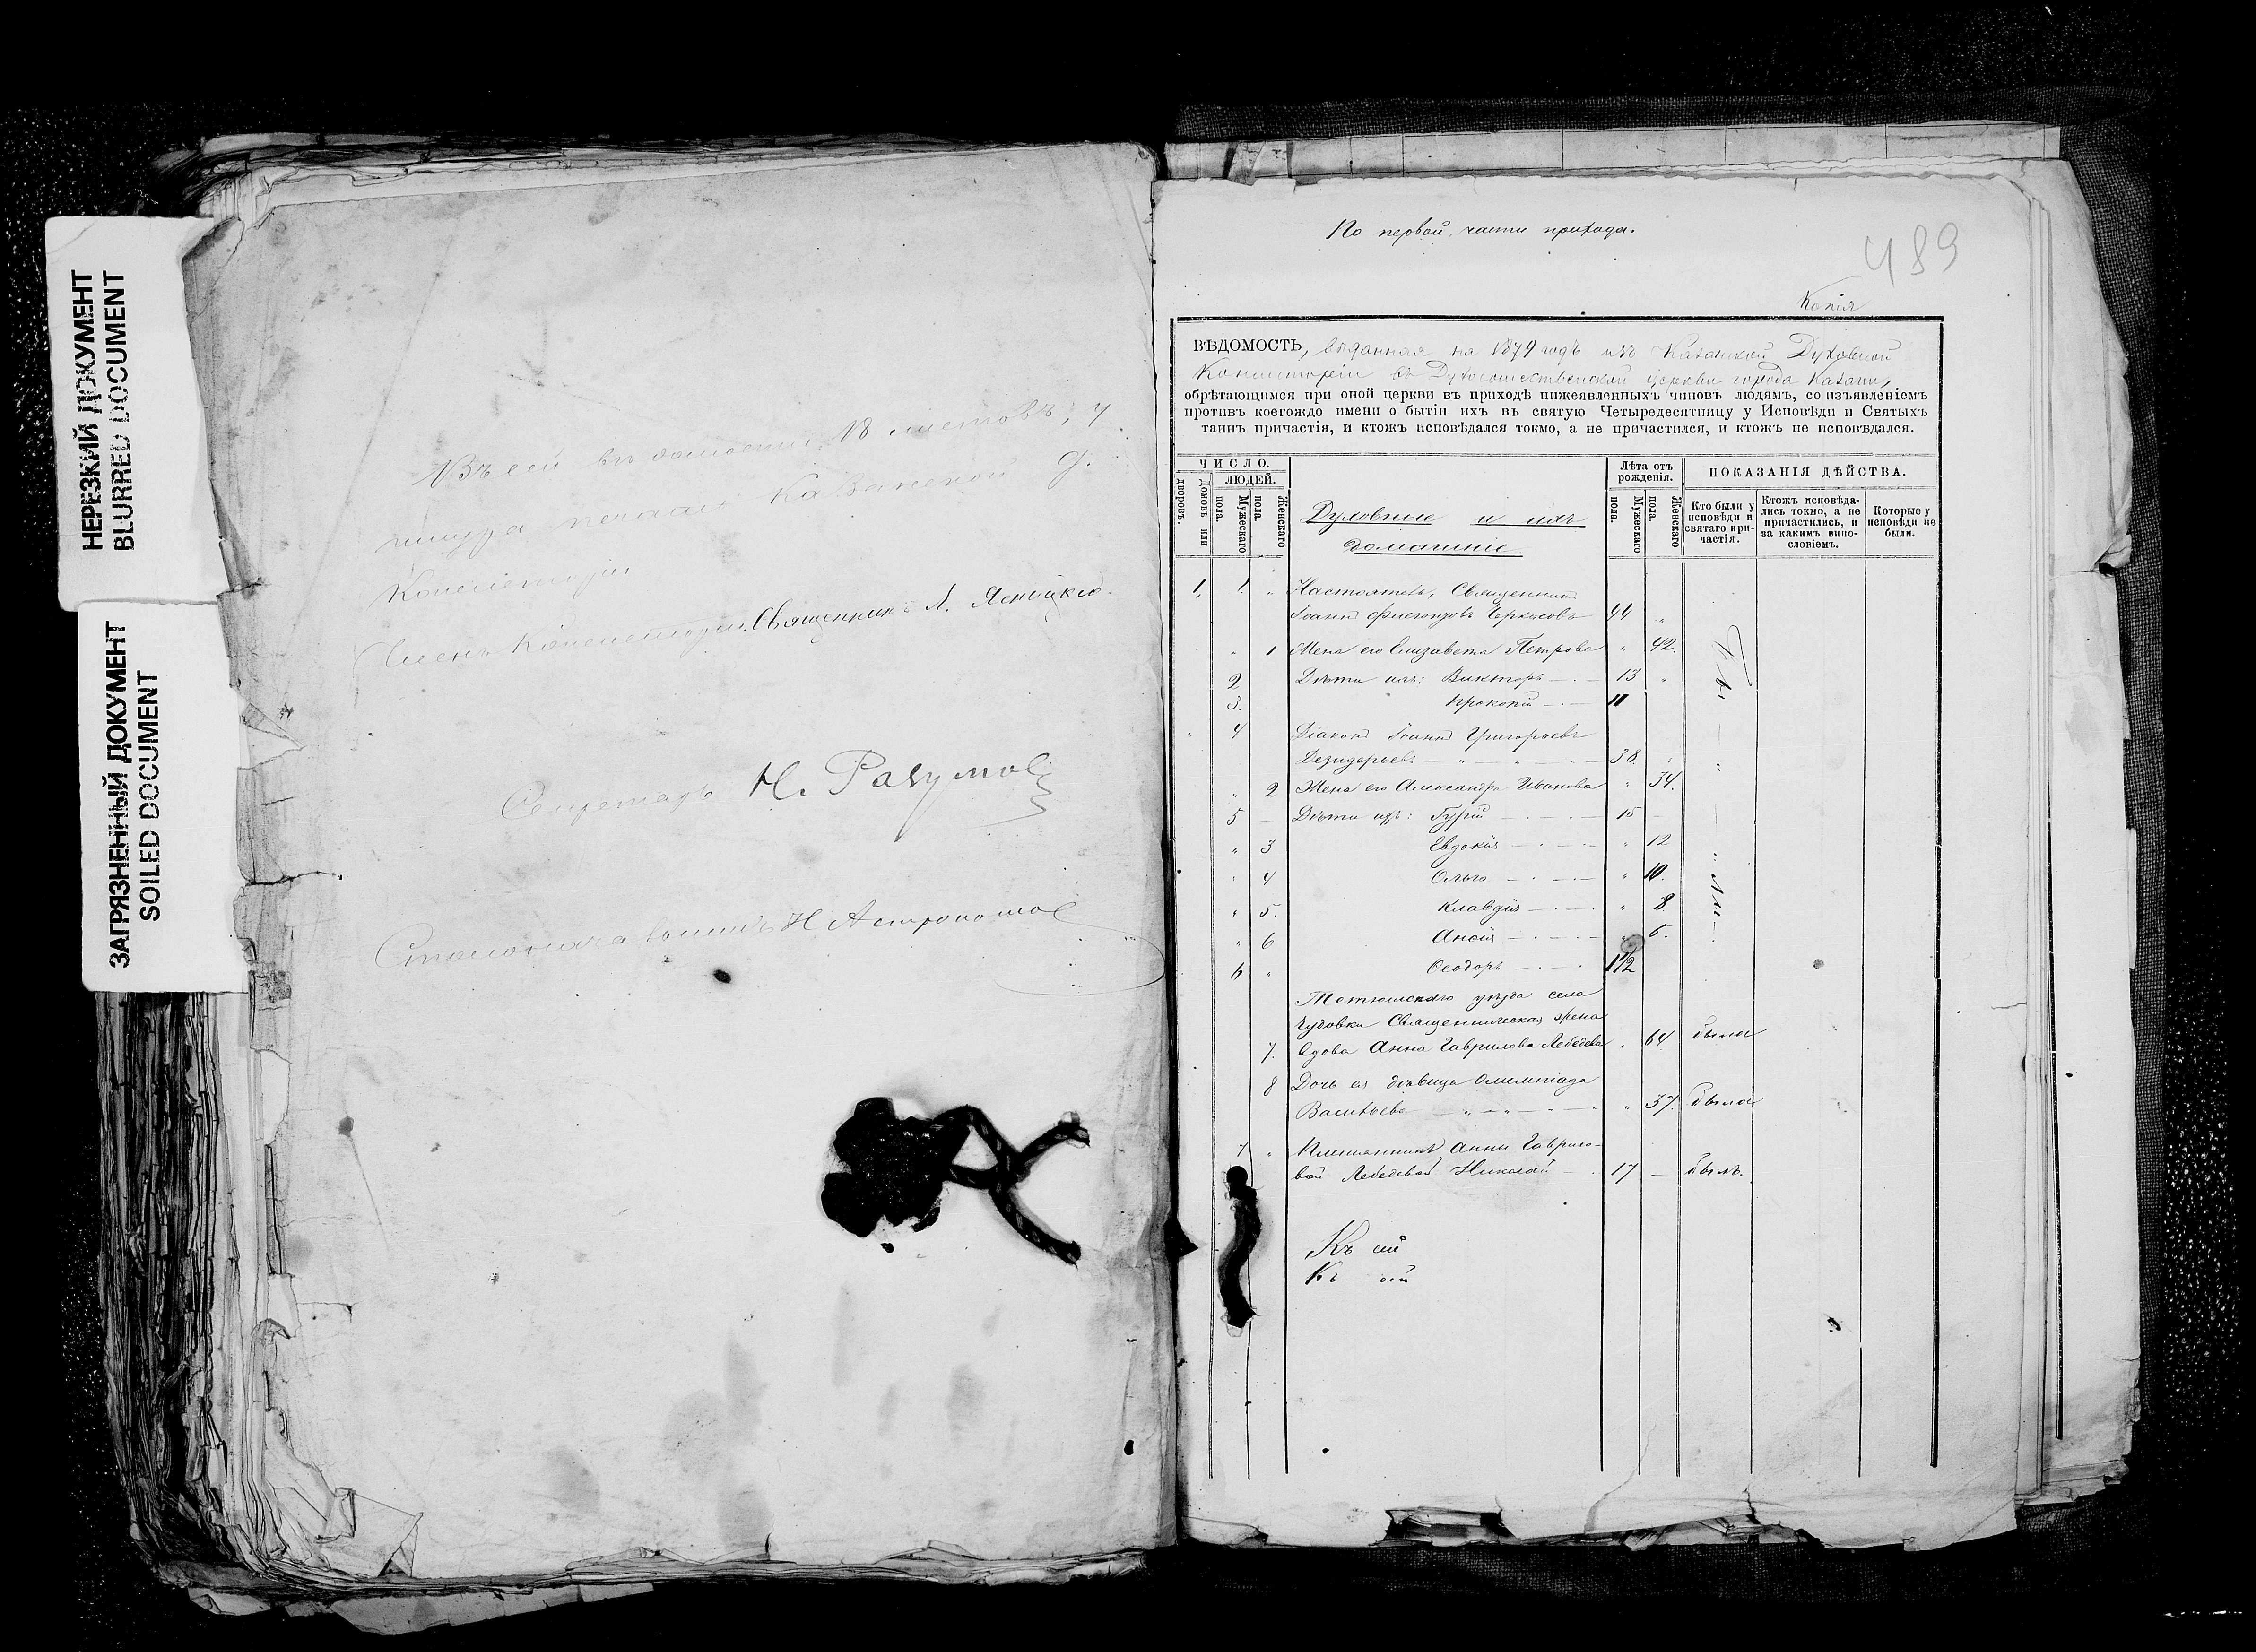 НЕРЕЗКИЙ ДОКУМЕНТ
BLURRED DOCUMENT
ЗАГРЯЗНЕННЫЙ ДОКУМЕНТ
SOILED DOCUMENT
Въ сей вѣдомости 18 листовъ, у
шнура печать Казанской Д.
Консисторіи
Членъ Консисторіи Священникъ А. Ясницкій.
Секретарь Н. Разумов
Столоначальникъ Н Астрономов
По первой части прихода.
489
Копія
ВѢДОМОСТЬ, выданная на 1879 годъ изъ Казанской Духовной
Консисторіи въ Духосошественской церкви города Казани,
обрѣтающимся при оной церкви въ приходѣ нижеявленныхъ чиновъ людямъ, со изъявленіемъ
противъ коегождо имени о бытіи ихъ въ святую Четыредесятницу у Исповѣди и Святыхъ
таинъ причастія, и ктожъ исповѣдался токмо, а не причастился, и ктожъ не исповѣдался.
ЧИСЛО.
ЛЮДЕЙ.
Домовъ или дворовъ.
Мужескаго пола.
Женскаго пола.
Духовные и ихъ
домашніе
Лѣта отъ рожденія.
Мужескаго пола.
Женскаго пола.
ПОКАЗАНІЯ ДѢЙСТВА.
Кто были у исповѣди и святаго причастія.
Ктожъ исповѣдались токмо, а не причастились, и за какимъ винословіемъ.
Которые у исповѣди не были.
1. 1. " Настоятель, Священникъ
Іоаннъ Флегонтовъ Черкасовъ 44 "
" 1 Жена его Елизавета Петрова " 42.
2 Дѣти ихъ: Викторъ 13 "
3. Прокопій 11
" 4 Діаконъ Іоаннъ Григорьевъ
Дезидерьевъ 38 "
" 2 Жена его Александра Иванова " 34.
5 — Дѣти ихъ: Гурій 15 —
" 3 Евдокія " 12
" 4 Ольга " 10.
" 5. Клавдія " 8
" 6 Ансія " 6.
6 " Ѳеодоръ 1½
Тетюшскаго уѣзда села
Чудовки Священническая жена
7. вдова Анна Гаврилова Лебедева " 64 была
8 Дочь ея дѣвица Олимпіада
Васильева " 37. была
7 " Племянникъ Анны Гаврило-
вой Лебедевой Николай 17 — былъ.
Къ сей
Къ сей